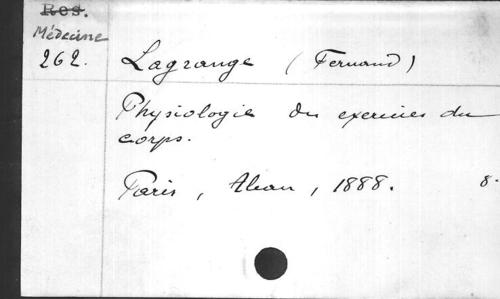 Res.
Médecine
262.
Lagrange (Fernand)
Physiologie des exercices du
corps.
Paris, Alcan, 1888. 8.